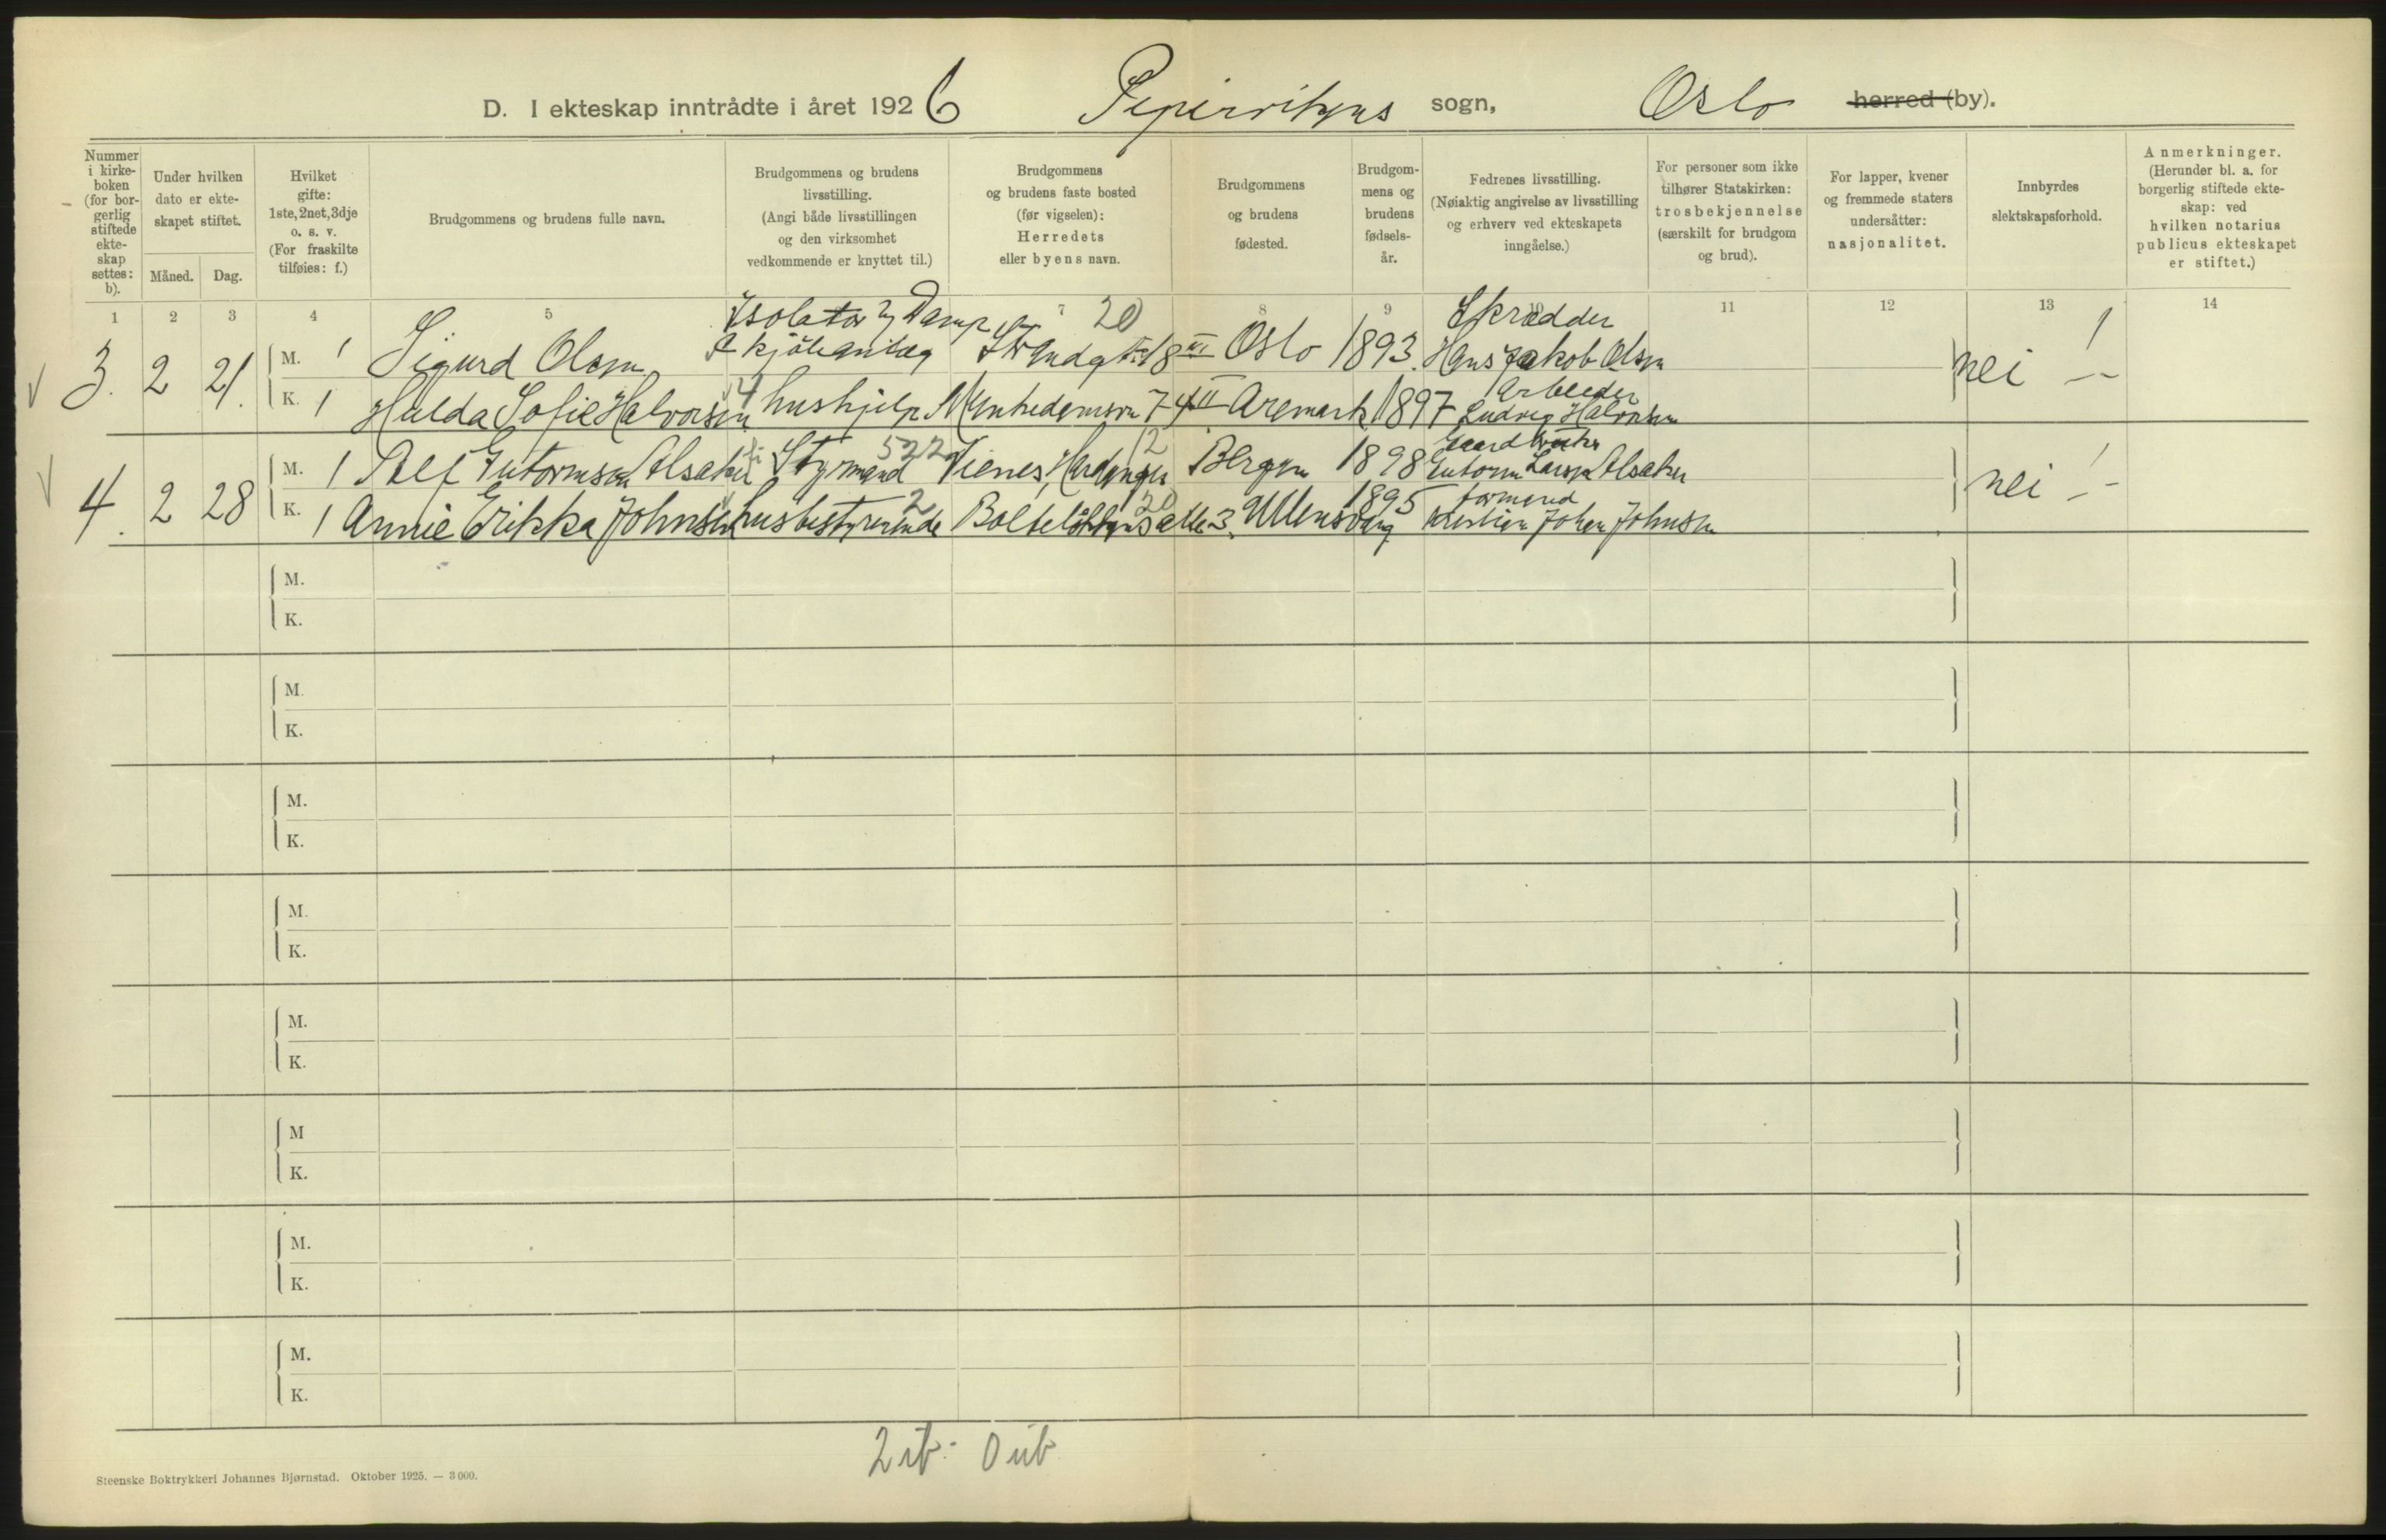 D. I ekteskap inntrådte i året 1926 Pipervikens sogn, Oslo herred (by).
Nummer i kirke-boken (for bor-gerlig stiftede ekte-skap settes: b).
Under hvilken dato er ekte-skapet stiftet.
Måned. Dag.
Hvilket gifte: 1ste, 2net, 3dje o. s. v. (For fraskilte tilføies: f.)
Brudgommens og brudens fulle navn.
Brudgommens og brudens livsstilling. (Angi både livsstillingen og den virksomhet vedkommende er knyttet til.)
Brudgommens og brudens faste bosted (før vigselen): Herredets eller byens navn.
Brudgommens og brudens fødested.
Brudgom-mens og brudens fødsels-år.
Fedrenes livsstilling. (Nøiaktig angivelse av livsstilling og erhverv ved ekteskapets inngåelse.)
For personer som ikke tilhører Statskirken: trosbekjennelse (særskilt for brudgom og brud).
For lapper, kvener og fremmede staters undersåtter: nasjonalitet.
Innbyrdes slektskapsforhold.
Anmerkninger. (Herunder bl. a. for borgerlig stiftede ekte-skap: ved hvilken notarius publicus ekteskapet er stiftet.)
1 2 3 4 5 7 8 9 11 12 13 14
Isolatør 20 Skrædder
3. 2 21. M. 1 Sigurd Olsen kjøleanlæg 18 III Oslo 1893. Hans Jakob Olsen nei
Arbeider
K. 1 Hulda Sofie Halvorsen hushjelp Munkedamsvn 74 II Aremark 1897 Ludvig Halvorsen
522 12 Gaardbruker
M. 1 Guttormsen Alsaker Styrmand Vienes, Hardanger Bergen 1898 Guttorm Larsen Alsaker
4. 2 28 nei
2 20 1895 formand
K. 1 Annie Erikka Johnsen husbestyrerinde Bolteløkkens alle 3. Ullensvang Kristian Johan Johnsen
M.
K.
M.
K.
M.
K.
M.
K.
M.
K.
M
K.
M.
K.
M.
K.
2 ib. 0 ub
Steenske Boktrykkeri Johannes Bjørnstad. Oktober 1925. — 3 000.